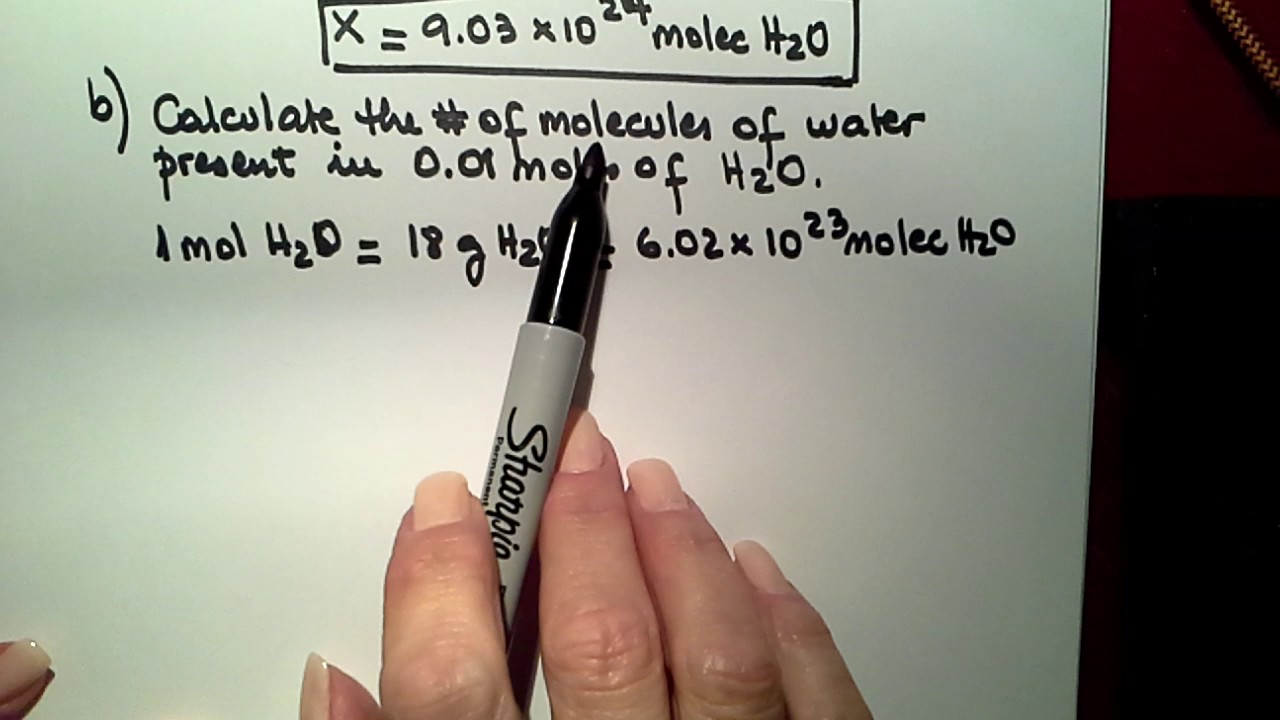 X = 9.03 × 10²⁴ molec H₂O
b) Calculate the # of molecules of water
present in 0.01 of H₂O.
1 mol H₂O = 18 g = 6.02 × 10²³ molec H₂O
Sharpie
Permanent